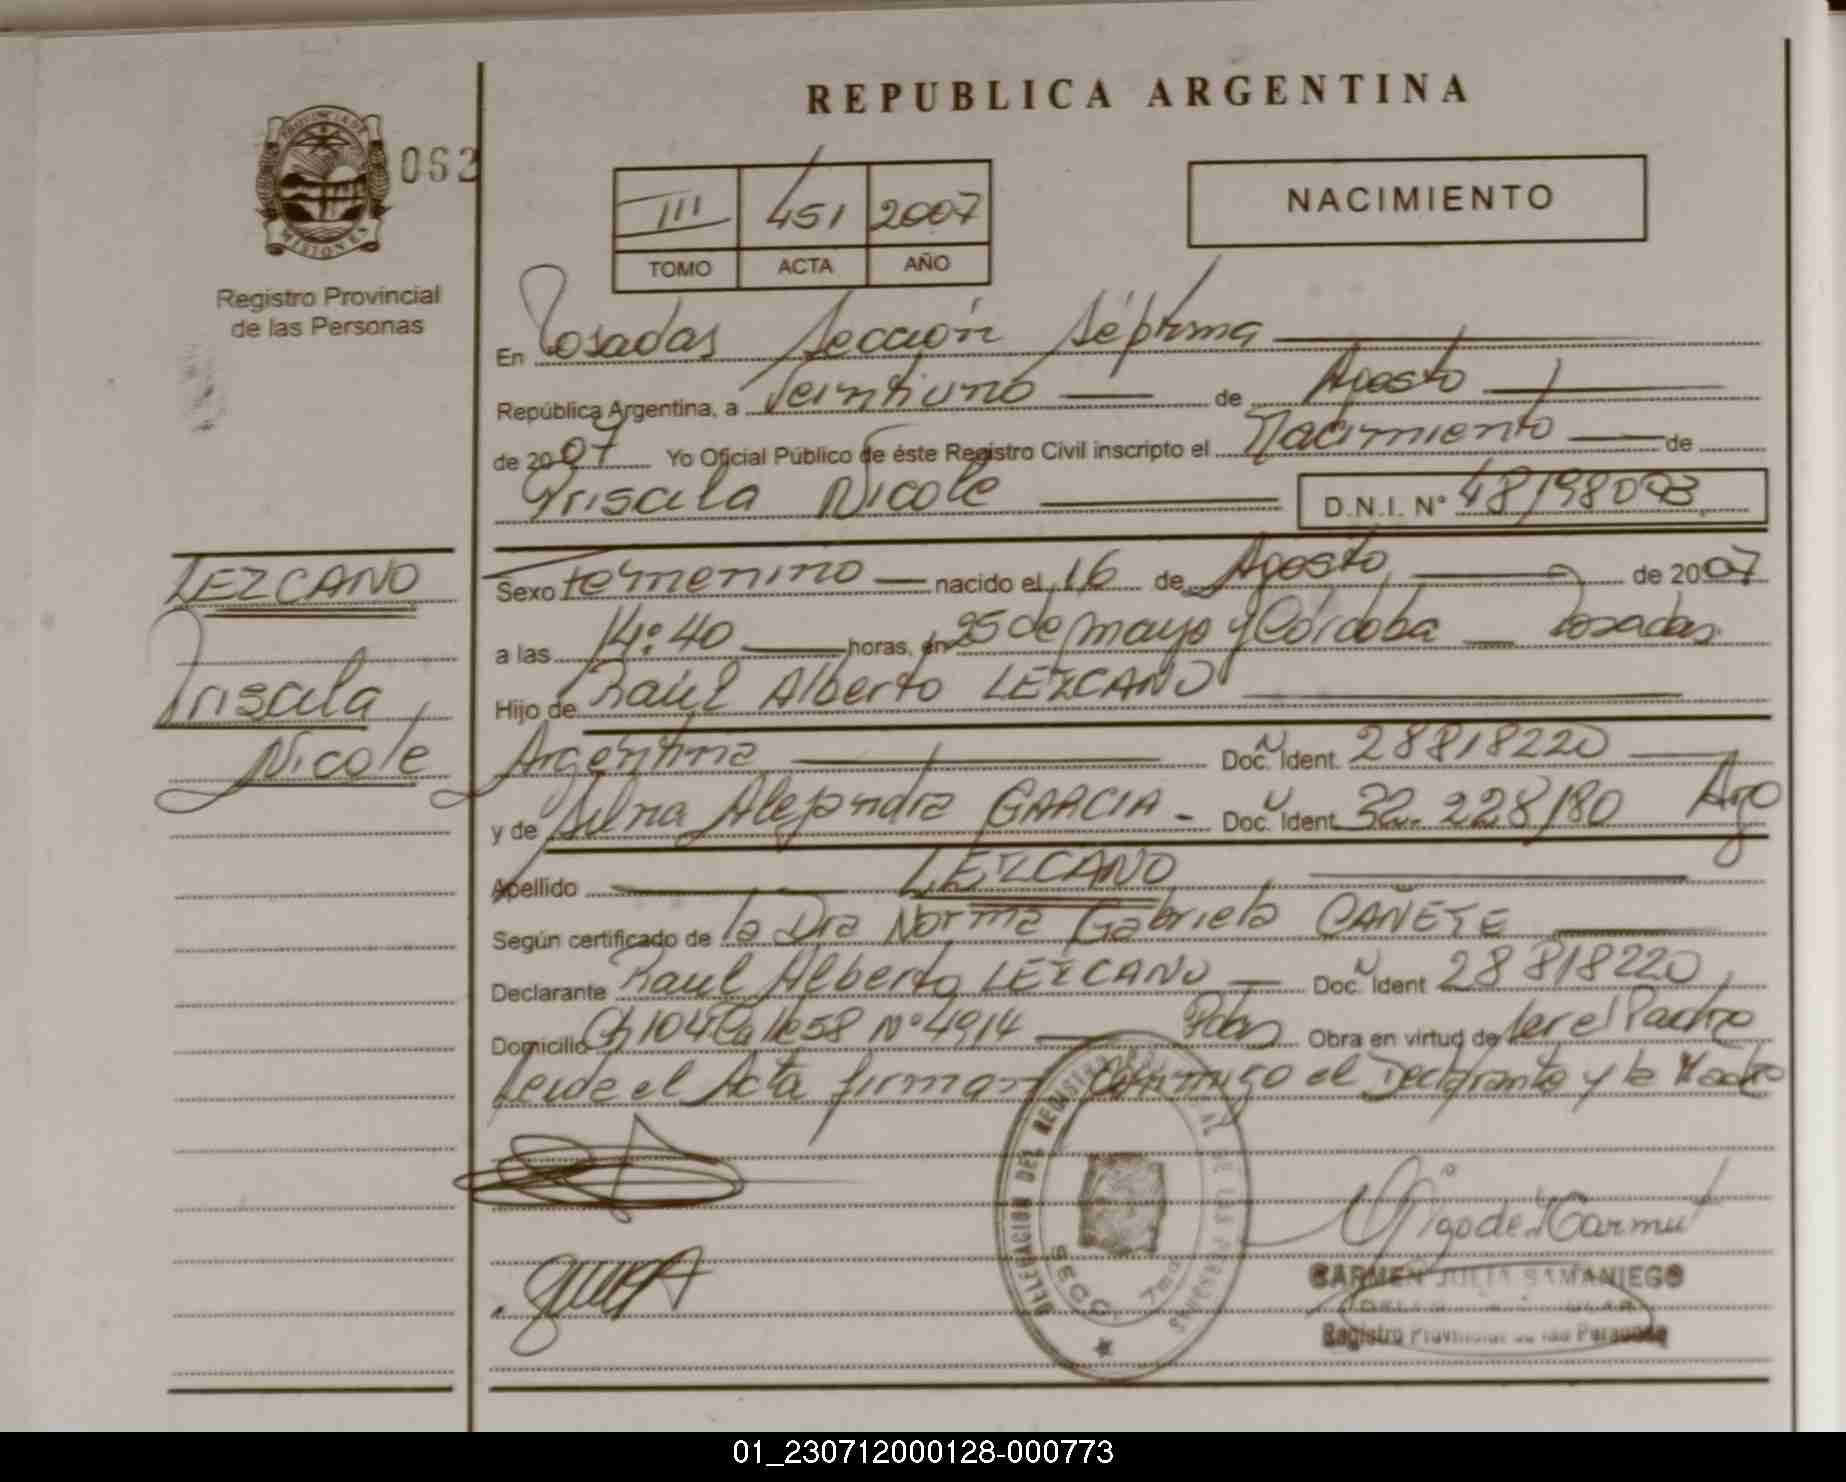 REPUBLICA ARGENTINA
PROVINCIA DE
MISIONES
062
Registro Provincial
de las Personas
III 451 2007
TOMO ACTA AÑO
NACIMIENTO
En Posadas Sección Séptima
República Argentina, a Veintiuno de Agosto
de 2007 Yo Oficial Público de éste Registro Civil inscripto el Nacimiento de
Priscila Nicole D.N.I. N° 48198093
LEZCANO
Priscila
Nicole
Sexo femenino nacido el 16 de Agosto de 2007
a las 14:40 horas, en 25 de mayo y Córdoba Posadas
Hijo de Raúl Alberto LEZCANO
Argentina Doc. Ident. 28818220
y de Silvia Alejandra GARCIA - Doc. Ident. 32.228180 Arg
Apellido LEZCANO
Según certificado de la Dra Norma Gabriela CAÑETE
Declarante Raul Alberto LEZCANO Doc. Ident 28818220
Domicilio Ch 104 Calle 58 N° 4914 Pdas Obra en virtud de ser el Padre
Leída el Acta firman conmigo el Declarante y la Madre
DELEGACION DEL REGISTRO PROVINCIAL DE LAS PERSONAS
SECC. 7ma
CARMEN JULIA SAMANIEGO
Registro Provincial de las Personas
01_230712000128-000773